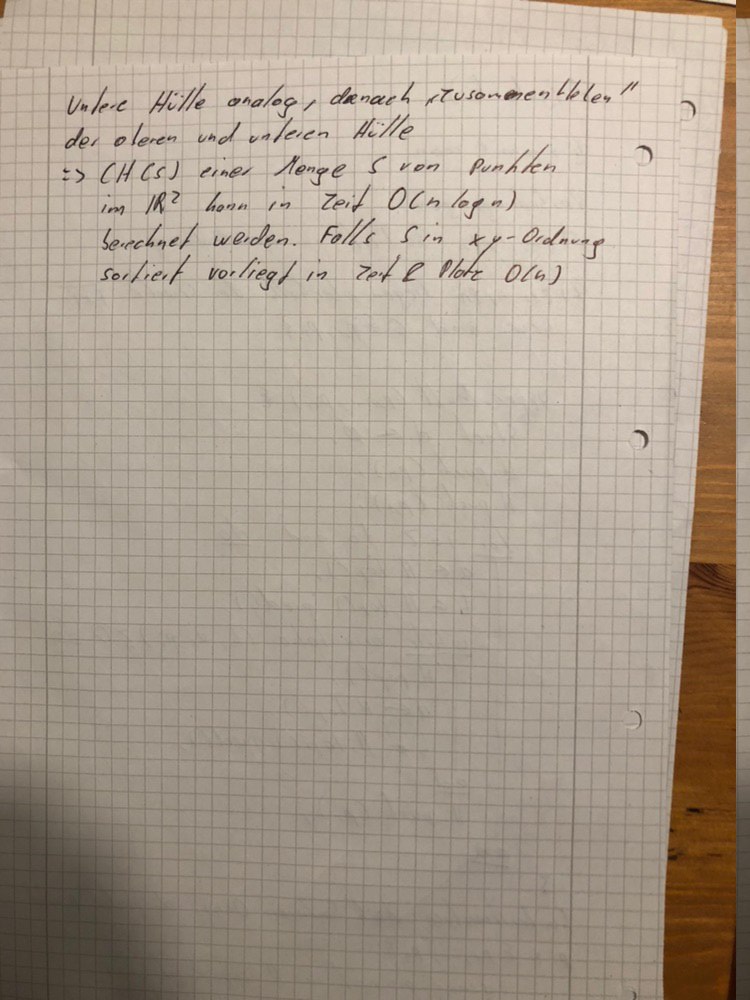 Untere Hülle analog, danach „zusammenkleben"
der oberen und unteren Hülle
=> CH(S) einer Menge S von Punkten
im ℝ² kann in Zeit O(n log n)
berechnet werden. Falls S in xy-Ordnung
sortiert vorliegt in Zeit & Platz O(n)